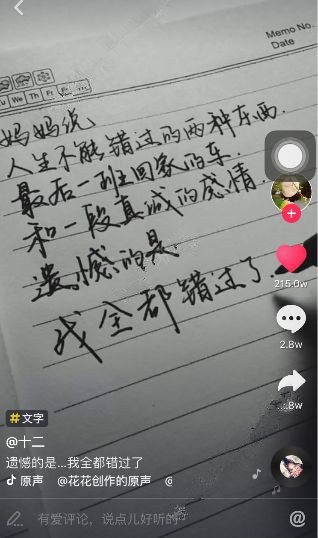 Memo No.
Date
Tu We Th Fr
妈妈说
人生不能错过的两种东西.
最后一班回家的车.
和一段真诚的感情.
遗憾的是.
我全都错过了.
215.0w
2.8w
.8w
#文字
@十二
遗憾的是...我全都错过了
原声 @花花创作的原声
有爱评论，说点儿好听的
@